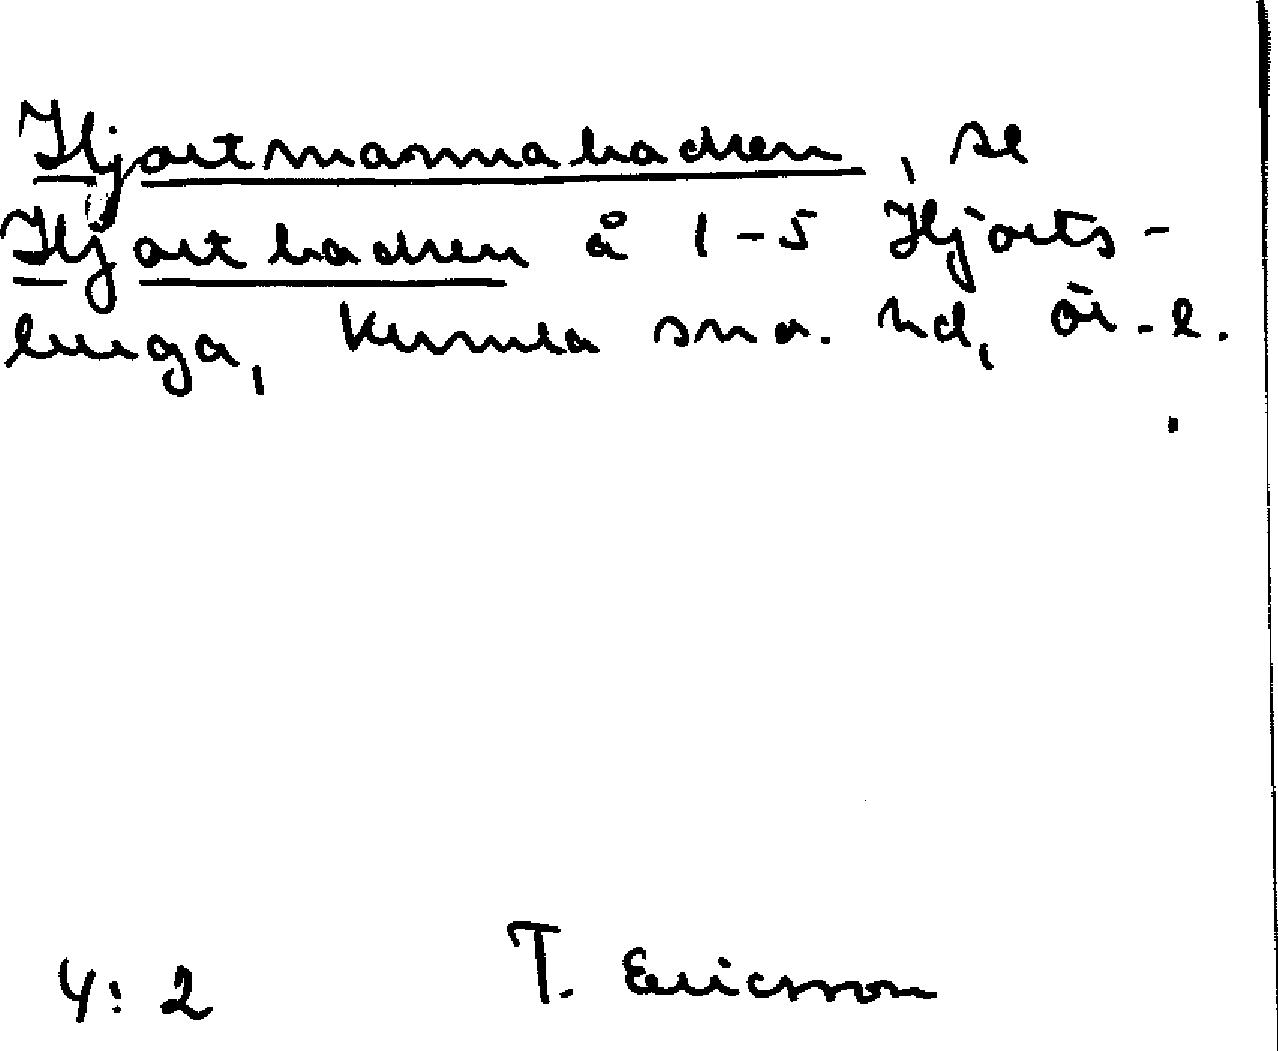 Hjortmannabacken, se
Hjortbacken å 1-5 Hjorts-
berga, Kumla sn o. hd, Ör. l.
4:2 T. Ericsson